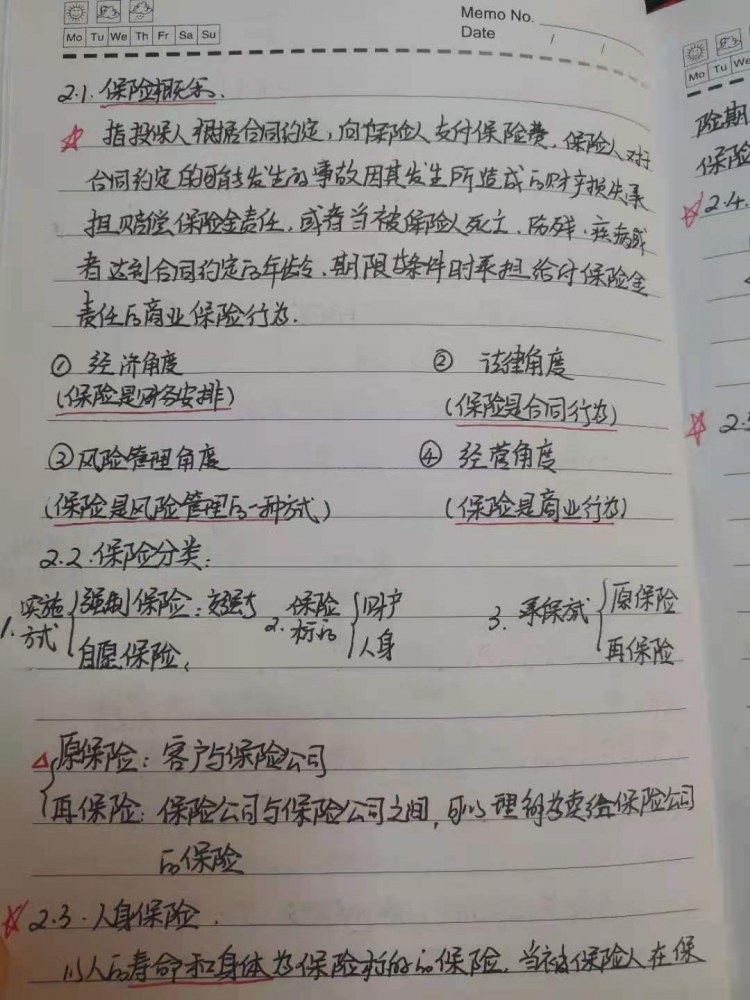 Memo No.
Mo Tu We Th Fr Sa Su
Date / /
2.1.保险概念.
☆ 指投保人根据合同约定,向保险人支付保险费,保险人对于
合同约定的可能发生的事故因其发生所造成的财产损失承
担赔偿保险金责任,或者当被保险人死亡、伤残、疾病或
者达到合同约定的年龄、期限等条件时承担给付保险金
责任的商业保险行为.
① 经济角度 ② 法律角度
(保险是财务安排) (保险是合同行为)
③ 风险管理角度 ④ 经营角度
(保险是风险管理的一种方式) (保险是商业行为)
2.2.保险分类:
1.实施方式 { 强制保险:交强 2.保险标的 { 财产 3.承保方式 { 原保险
自愿保险、 人身 再保险
△ 原保险:客户与保险公司
再保险:保险公司与保险公司之间,可以理解为卖给保险公司
的保险
☆ 2.3.人身保险.
以人的寿命和身体为保险标的的保险,当被保险人在保
Mo Tu We
险期
保险
☆ 2.4.
☆